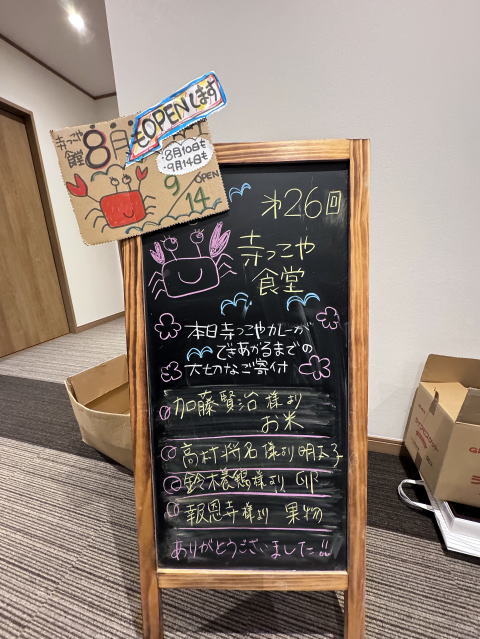 寺っこや
食堂
8月も
OPENします
・8月10日も
・9月14日も
9/14
OPEN
才26回
寺っこや
食堂
本日寺っこやカレーが
できあがるまでの
大切なご寄付
加藤賢治様より
お米
高村将名様より明太子
様より
報恩寺様より 果物
ありがとうございました!!